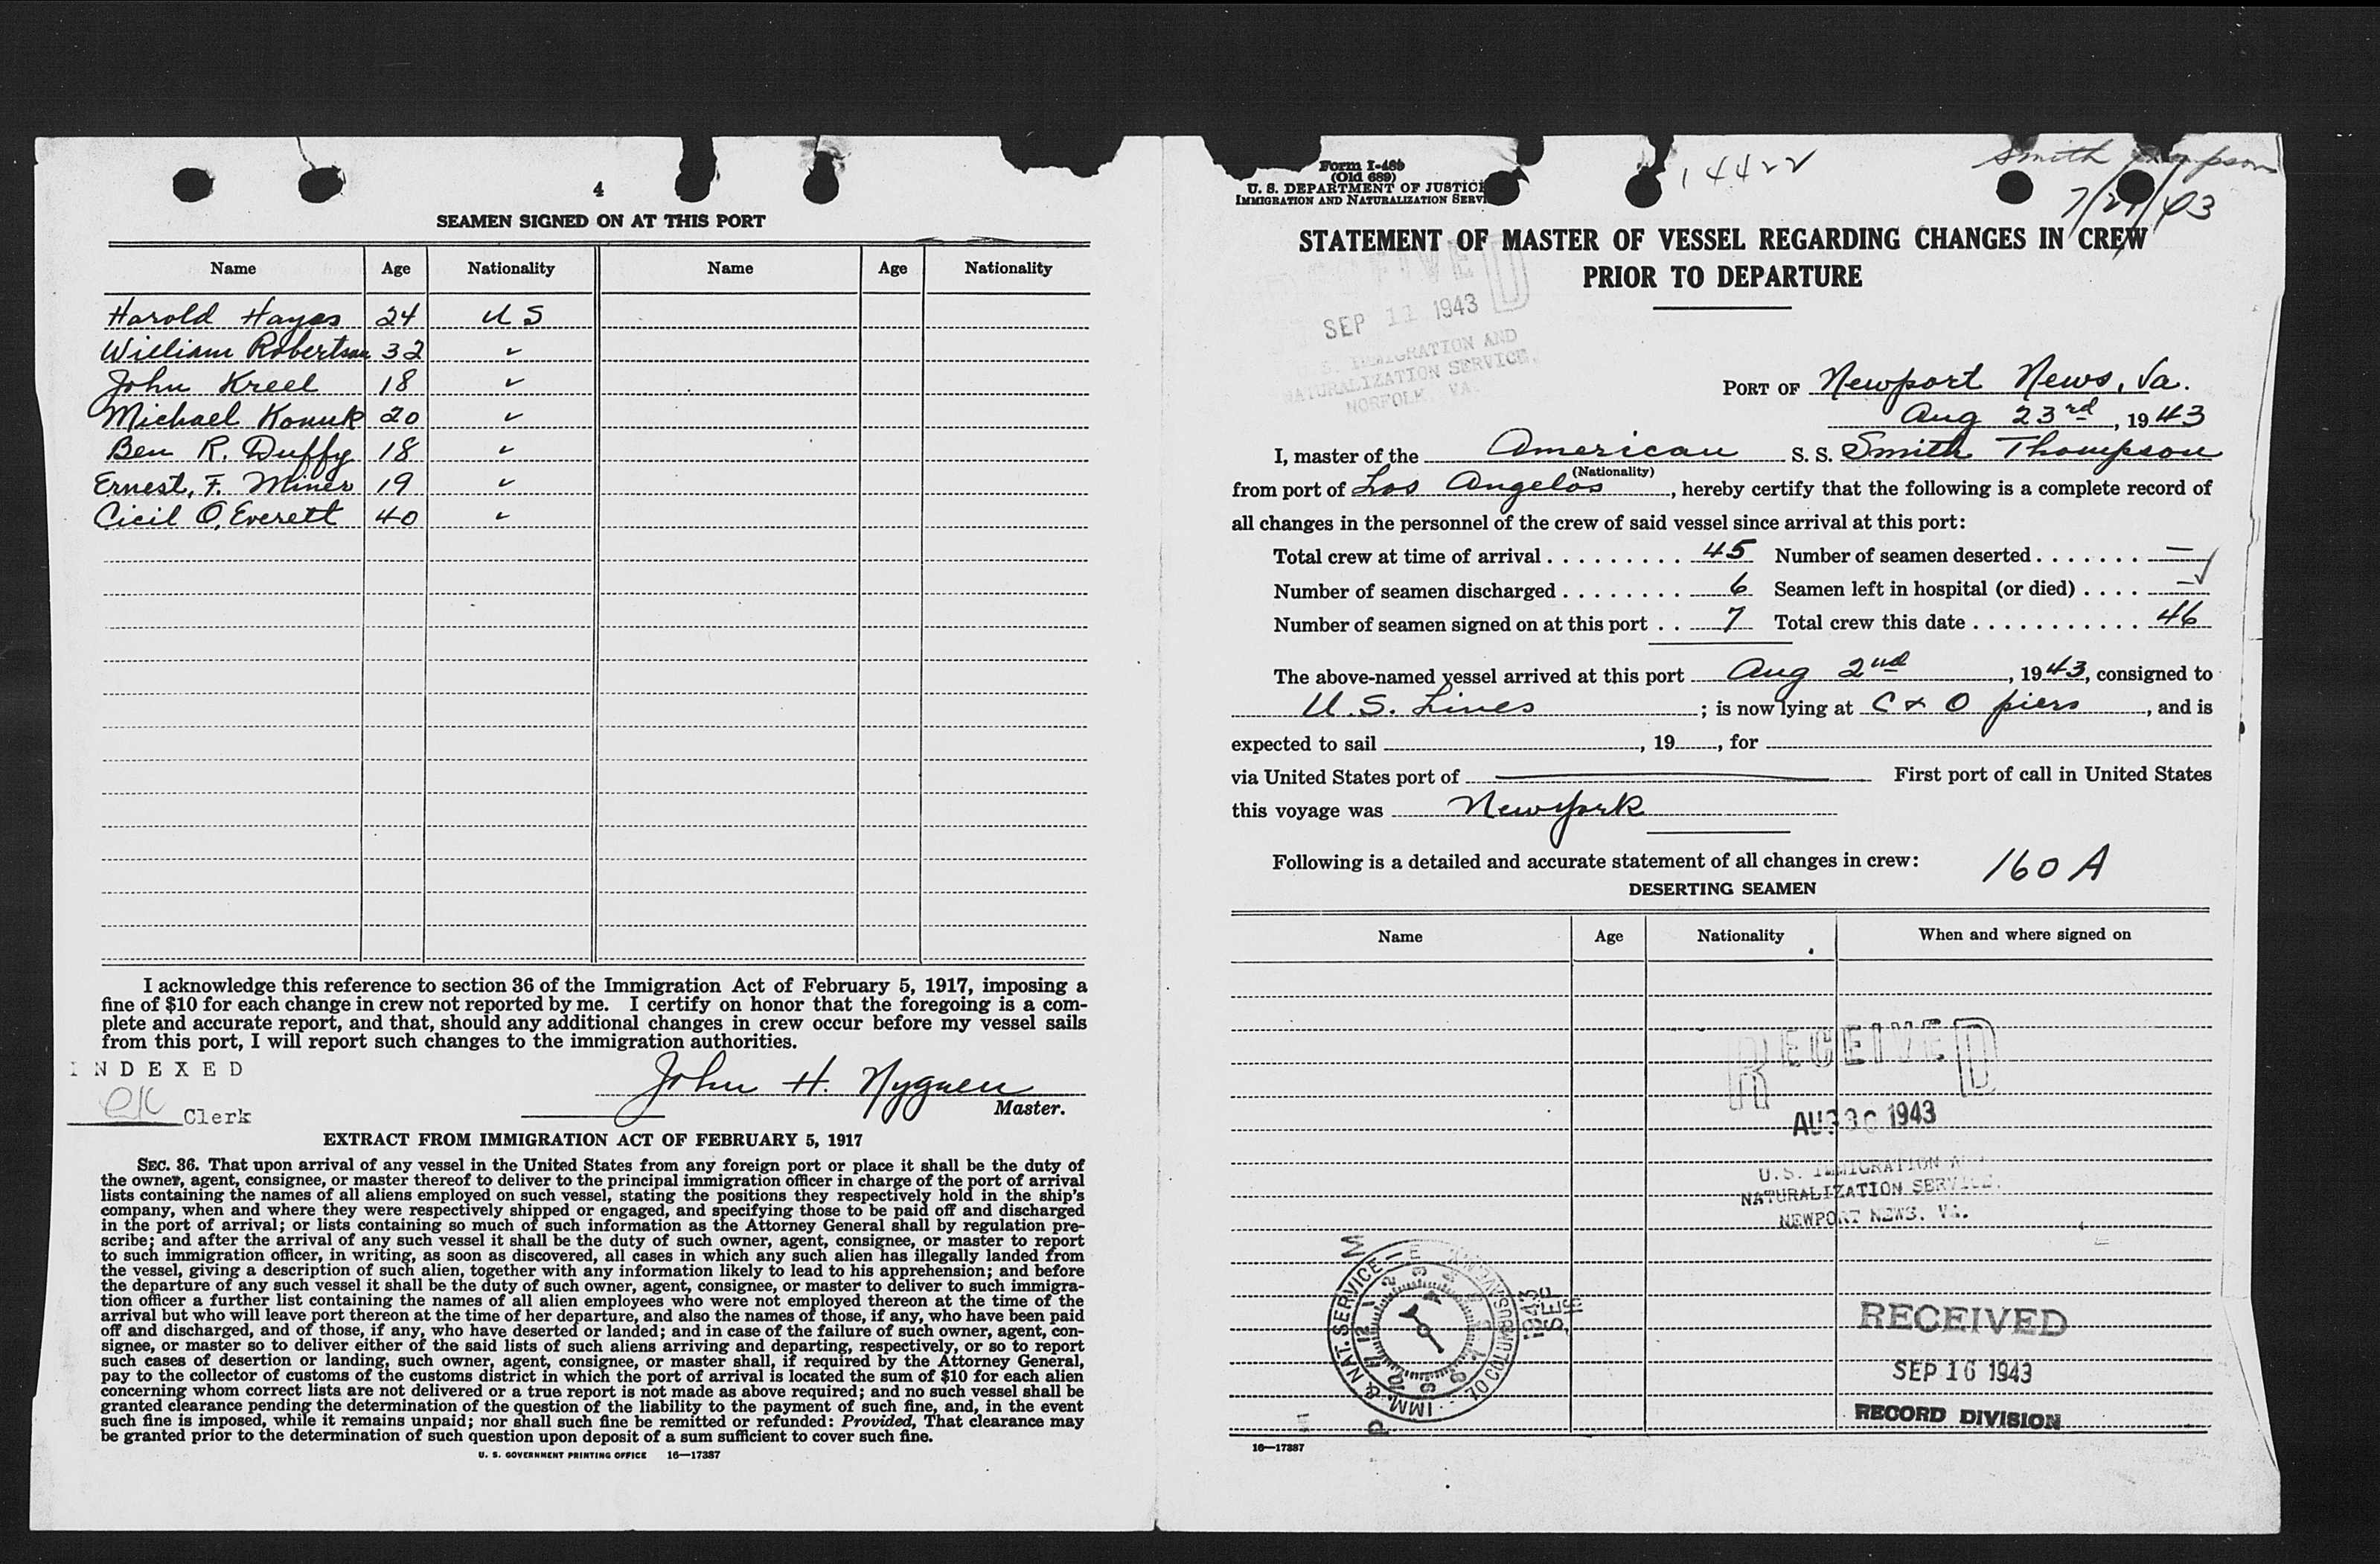 4
SEAMEN SIGNED ON AT THIS PORT
Name Age Nationality Name Age Nationality
Harold Hayes 24 U S
William Robertson 32 ✓
John Kreel 18 ✓
Michael Konuk 20 ✓
Ben R. Duffy 18 ✓
Ernest, F. Miner 19 ✓
Cicil O, Everett 40 ✓
I acknowledge this reference to section 36 of the Immigration Act of February 5, 1917, imposing a
fine of $10 for each change in crew not reported by me. I certify on honor that the foregoing is a com-
plete and accurate report, and that, should any additional changes in crew occur before my vessel sails
from this port, I will report such changes to the immigration authorities.
INDEXED
Clerk
John H. Nygren
Master.
EXTRACT FROM IMMIGRATION ACT OF FEBRUARY 5, 1917
SEC. 36. That upon arrival of any vessel in the United States from any foreign port or place it shall be the duty of
the owner, agent, consignee, or master thereof to deliver to the principal immigration officer in charge of the port of arrival
lists containing the names of all aliens employed on such vessel, stating the positions they respectively hold in the ship's
company, when and where they were respectively shipped or engaged, and specifying those to be paid off and discharged
in the port of arrival; or lists containing so much of such information as the Attorney General shall by regulation pre-
scribe; and after the arrival of any such vessel it shall be the duty of such owner, agent, consignee, or master to report
to such immigration officer, in writing, as soon as discovered, all cases in which any such alien has illegally landed from
the vessel, giving a description of such alien, together with any information likely to lead to his apprehension; and before
the departure of any such vessel it shall be the duty of such owner, agent, consignee, or master to deliver to such immigra-
tion officer a further list containing the names of all alien employees who were not employed thereon at the time of the
arrival but who will leave port thereon at the time of her departure, and also the names of those, if any, who have been paid
off and discharged, and of those, if any, who have deserted or landed; and in case of the failure of such owner, agent, con-
signee, or master so to deliver either of the said lists of such aliens arriving and departing, respectively, or so to report
such cases of desertion or landing, such owner, agent, consignee, or master shall, if required by the Attorney General,
pay to the collector of customs of the customs district in which the port of arrival is located the sum of $10 for each alien
concerning whom correct lists are not delivered or a true report is not made as above required; and no such vessel shall be
granted clearance pending the determination of the question of the liability to the payment of such fine, and, in the event
such fine is imposed, while it remains unpaid; nor shall such fine be remitted or refunded: Provided, That clearance may
be granted prior to the determination of such question upon deposit of a sum sufficient to cover such fine.
U. S. GOVERNMENT PRINTING OFFICE 16—17387
Form I-489
(Old 689)
U. S. DEPARTMENT OF JUSTICE
IMMIGRATION AND NATURALIZATION SERVI
14422
Smith Thompson
STATEMENT OF MASTER OF VESSEL REGARDING CHANGES IN CREW
PRIOR TO DEPARTURE
RECEIVED
SEP 11 1943
U. S. IMMIGRATION AND
NATURALIZATION SERVICE.
NORFOLK, VA.
PORT OF Newport News, Va.
Aug 23rd, 1943
I, master of the American S. S. Smith Thompson
(Nationality)
from port of Los Angelos, hereby certify that the following is a complete record of
all changes in the personnel of the crew of said vessel since arrival at this port:
Total crew at time of arrival . . . . . . . . . 45 Number of seamen deserted . . . . . . . —
Number of seamen discharged . . . . . . . . 6 Seamen left in hospital (or died) . . . . —
Number of seamen signed on at this port . . 7 Total crew this date . . . . . . . . . . . 46
The above-named vessel arrived at this port Aug 2nd, 1943, consigned to
U.S. Lines; is now lying at C & O piers, and is
expected to sail , 19 , for
via United States port of — First port of call in United States
this voyage was New York
Following is a detailed and accurate statement of all changes in crew: 160 A
DESERTING SEAMEN
Name Age Nationality When and where signed on
RECEIVED
AUG 30 1943
U.S. IMMIGRATION
NATURALIZATION SERVICE.
NEWPORT NEWS, VA.
IMM. & NAT. SERVICE
1943
SEP
16
RECEIVED
SEP 16 1943
RECORD DIVISION
16—17387